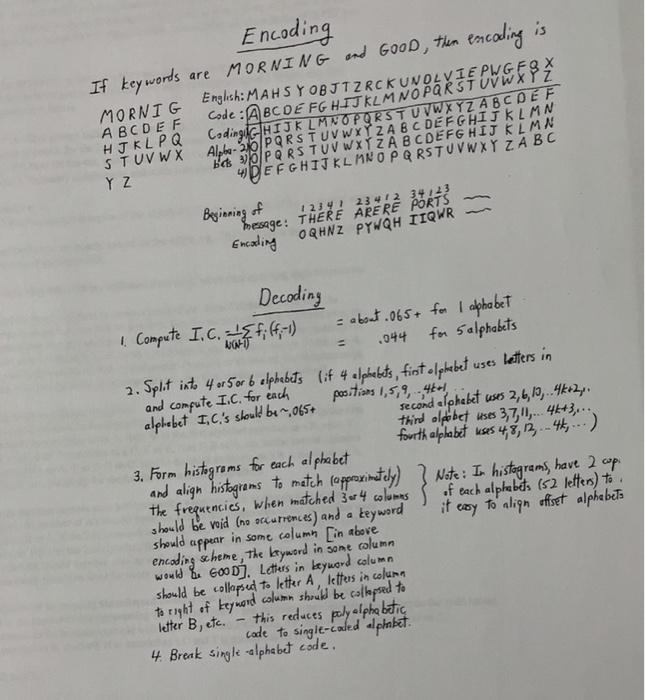 Encoding
If keywords are MORNING and GOOD, then encoding is
MORNIG
ABCDEF
HJKLPQ
STUVWX
YZ
English: MAHSYOBJTZRCKUNDLVIEPWGFQX
Code: ABCDEFGHIJKLMNOPQRSTUVWXYZ
Coding 1) GHIJKLMNOPQRSTUVWXYZABCDEF
Alpha- 2) OPQRSTUVWXYZABCDEFGHIJKLMN
bets 3) OPQRSTUVWXYZABCDEFGHIJKLMN
4) DEFGHIJKLMNOPQRSTUVWXYZABC
1 2 3 4 1 2 3 4 1 2 3 4 1 2 3
Beginning of message: THERE ARERE PORTS
Encoding OQHNZ PYWQH IIQWR
Decoding
1. Compute I.C. = 1/N(N-1) Σ fi (fi-1) = about .065+ for 1 alphabet
= .044 for 5 alphabets
2. Split into 4 or 5 or 6 alphabets (if 4 alphabets, first alphabet uses letters in
and compute I.C. for each positions 1,5,9,...4k+1,
alphabet I.C.'s should be ~.065+ second alphabet uses 2,6,10,..4k+2,..
third alphabet uses 3,7,11,... 4k+3,...
fourth alphabet uses 4,8,12,... 4k,...)
3. Form histograms for each alphabet
and align histograms to match (approximately)
the frequencies, when matched 3 or 4 columns
should be void (no occurrences) and a keyword
should appear in some column [in above
encoding scheme, the keyword in some column
would be GOOD]. Letters in keyword column
should be collapsed to letter A, letters in column
to right of keyword column should be collapsed to
letter B, etc. — this reduces polyalphabetic
code to single-coded alphabet.
Note: In histograms, have 2 copi
of each alphabets (52 letters) to
it easy to align offset alphabets
4. Break single-alphabet code.